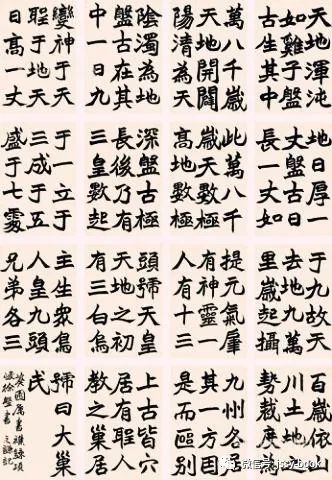 天地渾沌
如雞子盤
古生其中
萬八千歲
天地開闢
陽清為天
陰濁為地
盤古在其
中一日九
變神于天
聖于地天
日高一丈
地日厚一
丈盤古日
長一丈如
此萬八千
歲天數極
高地數極
深盤古極
長後乃有
三皇數起
于一立于
三成于五
盛于七處
于九故天
去地九萬
里歲起攝
提元氣肇
有神靈一
人有十三
頭號天皇
天地之初
有三白烏
主生眾鳥
人皇九頭
兄弟各三
百歲依山
川土地之
勢裁度為
九州各居
其一方因
是而區別
上古皆穴
居有聖人
教之巢居
號曰大巢
氏